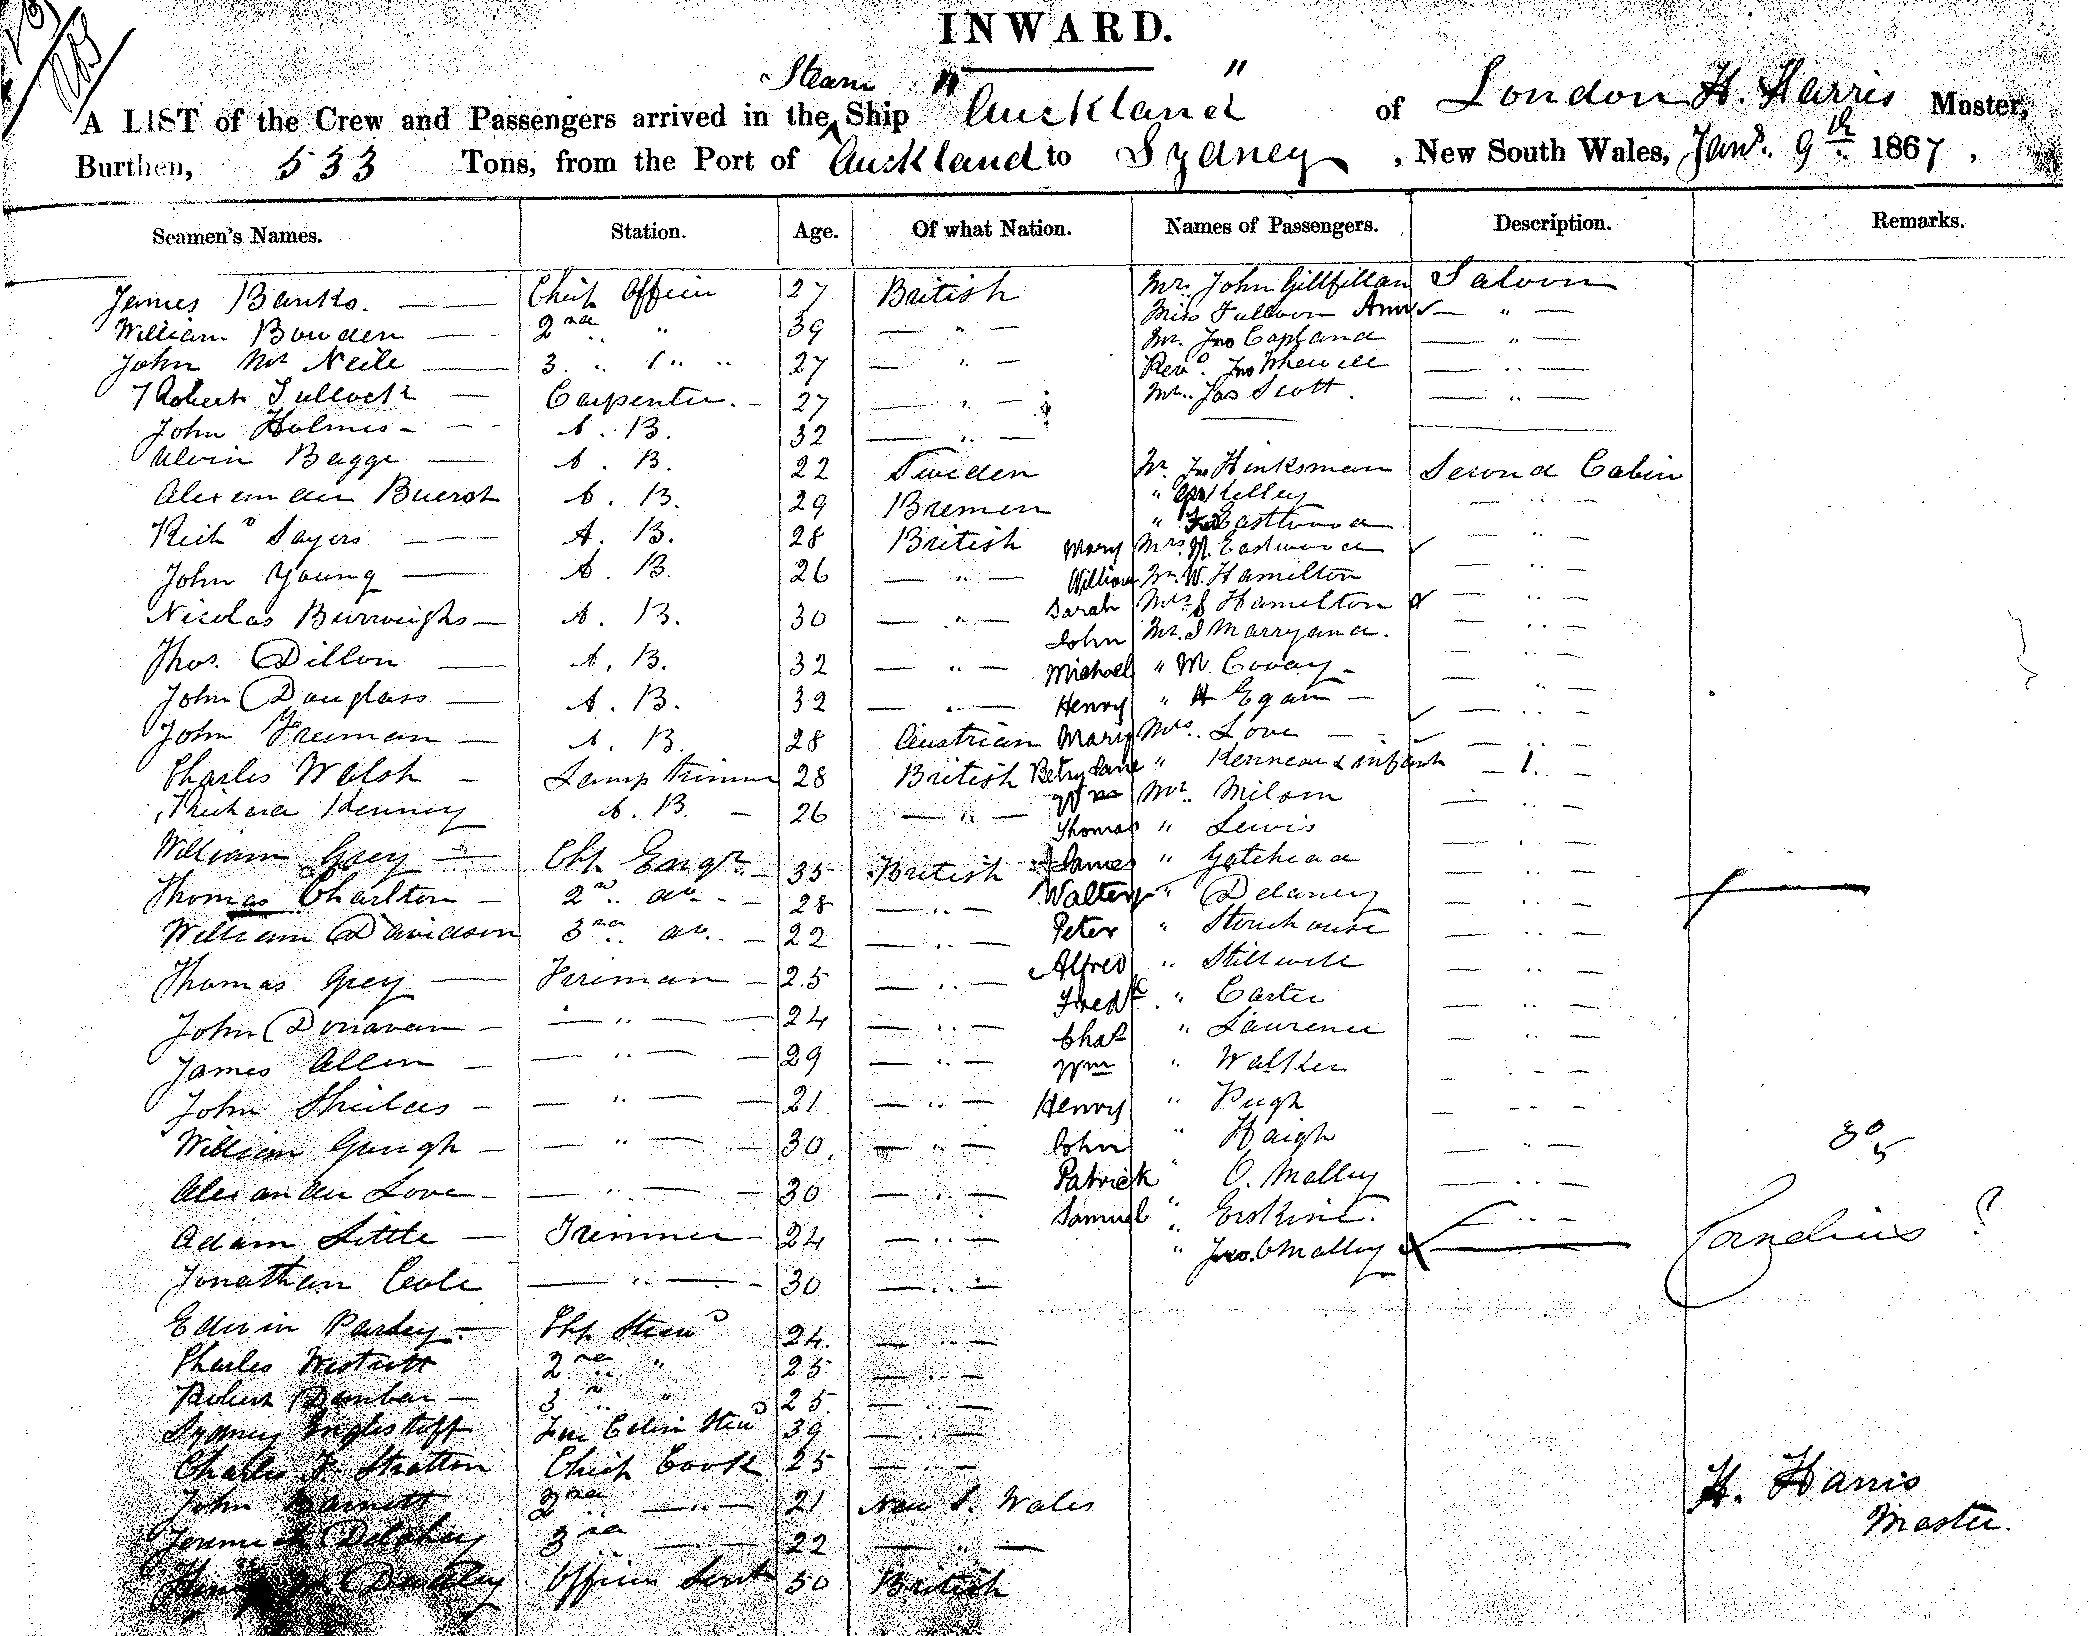 INWARD.
A LIST of the Crew and Passengers arrived in the Steam Ship "Auckland" of London H. Harris Master,
Burthen, 533 Tons, from the Port of Auckland to Sydney, New South Wales, Jany. 9th 1867.
Seamen's Names. Station. Age. Of what Nation. Names of Passengers. Description. Remarks.
James Banks. Chief Officer 27 British Mr. John Gillfillan Saloon
William Bowden 2nd " 39 " Miss Fulloon Ann "
John Mc Neile 3 " 27 " Mr. Jno Copland "
Robert Tullock Carpenter. 27 " Revd. Jno Whewell "
John Holmes A. B. 32 " Mr. Jas Scott "
Alvin Bagge A. B. 22 Sweden Mr. Jno Hinksman Second Cabin
Alexander Buerst A. B. 29 Bremen " Kelley "
Richd Sayers A. B. 28 British " Eastwood "
John Young A. B. 26 " Mary Mrs M. Eastwood "
William Mr. W. Hamilton "
Nicolas Burrweighs A. B. 30 " Sarah Mrs. S Hamilton "
John Mr. J Marryand. "
Thos. Dillon A. B. 32 " Michael " M. Covay "
John Douglass A. B. 32 " Henry " H Egan "
John Freeman A. B. 28 Austrian Mary Mrs. Love "
Charles Walsh Lamp Trimmer 28 British Betsy Jane " Kenneou & infant 1.
Richard Kenney A. B. 26 " Wm Mr. Milsom "
Thomas " Lewis "
William Grey Chf Engr. 35 British James " Gatehead "
Thomas Charlton 2nd do. 28 " Walter " Delaney "
William Davidson 3rd do. 22 " Peter " Stonehouse "
Thomas Grey Fireman 25 " Alfred " Stillwell "
Fredk. " Carter "
John Donavan " 24 " Chas " Laurence "
James Allen " 29 " Wm " Walker "
John Sheilds " 21 " Henry " Pugh "
William Gough " 30. " John " Haigh " 30/5
Alexander Love " 30 " Patrick " O. Malley "
Samuel " Erskine. "
Adam Little Trimmer 24 " " Jno. OMalley Cornelius ?
Jonathan Cole " 30 "
Edwin Parley Chf Stewd 24. "
Charles Westcott 2nd " 25 "
Robert Dunbar 3rd " 25. "
Sydney Inglestoff Fore Cabin Stewd 39 "
Charles F. Stratton Chief Cook 25 "
John Barnett 2nd " 21 New S. Wales
Jeremiah 3rd " 22 "
Officers Servt 50 British
H. Harris
Master.